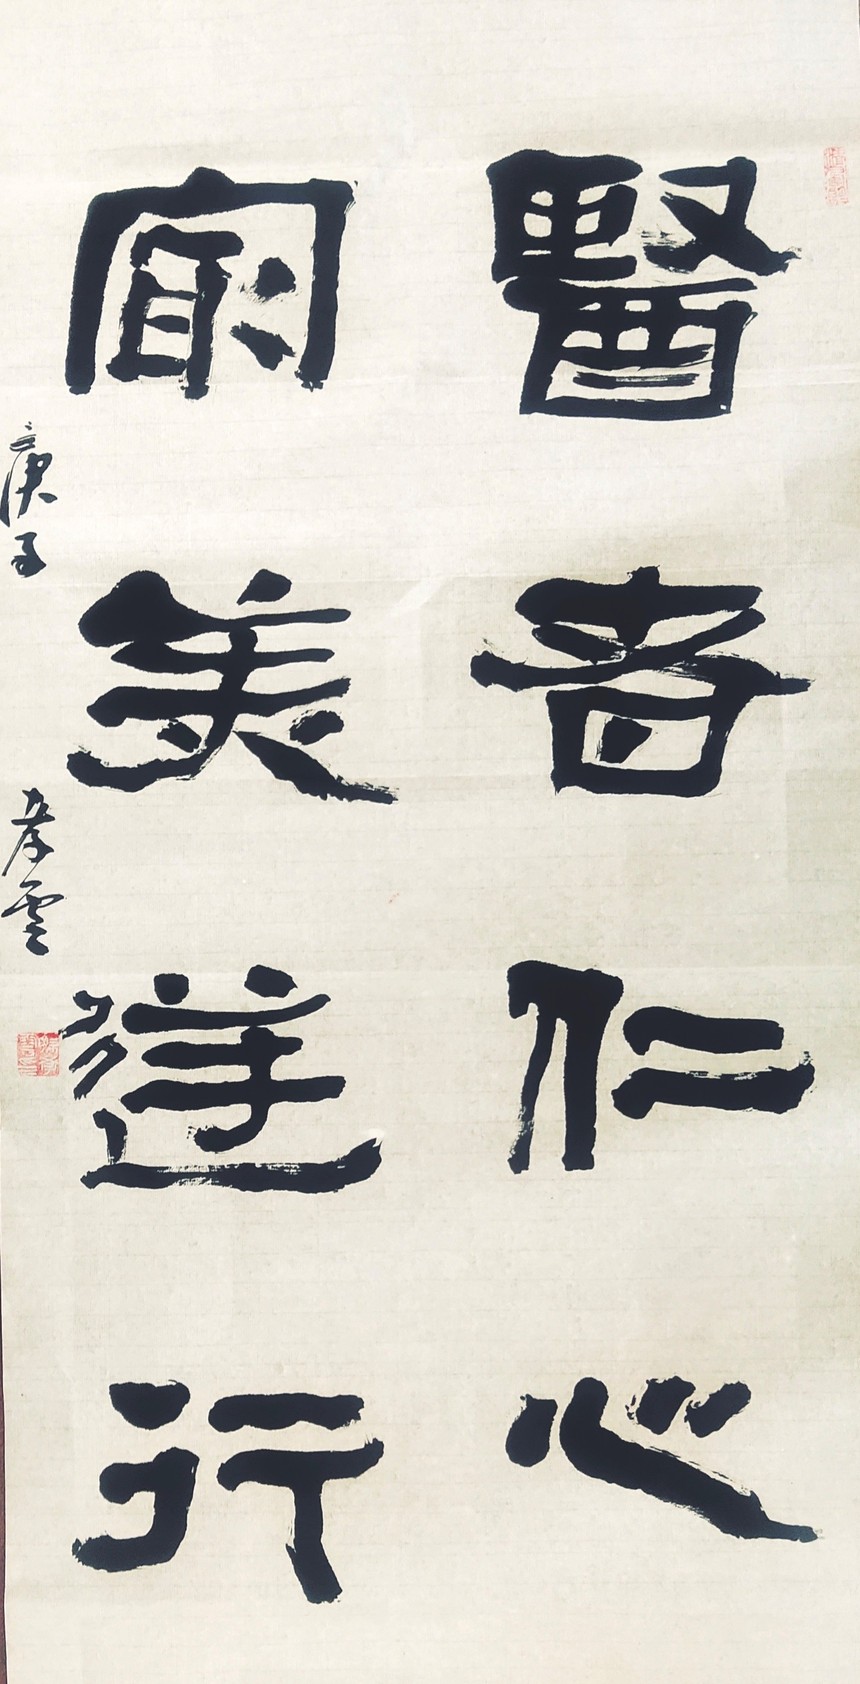 醫者仁心
㝡美逆行
庚子 孝雲